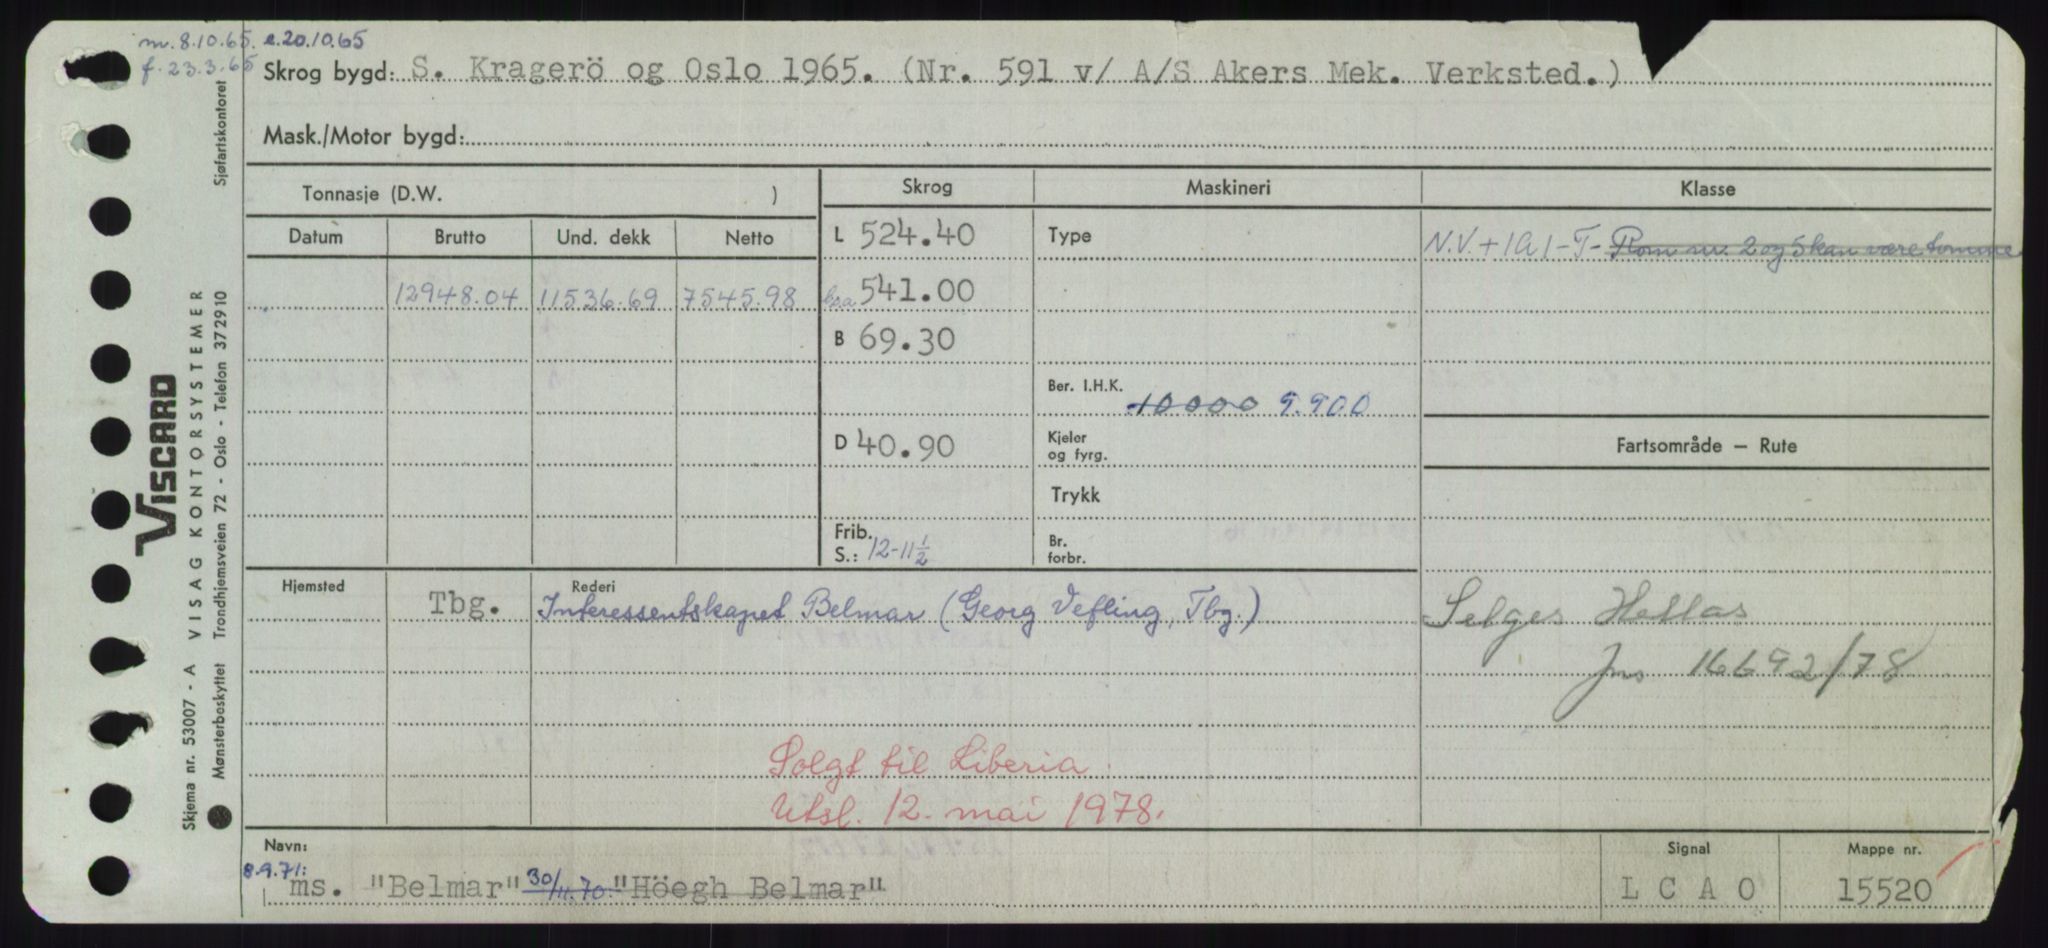 m. 8.10.65. e.20.10.65
f. 23.3.65
Skrog bygd: S. Kragerö og Oslo 1965. (Nr. 591 v/ A/S Akers Mek. Verksted.)
Mask./Motor bygd:
Tonnasje (D.W. )
Skrog
Maskineri
Klasse
Datum Brutto Und. dekk Netto
L 524.40
Type
N.V. + 1A1 - T - Rom nr. 2 og 5 kan være tomme
12948.04 11536.69 7545.98
541.00
B 69.30
Ber. I.H.K. 10000 9.900
D 40.90
Kjeler og fyrg.
Fartsområde — Rute
Trykk
Frib. S.: 12-11½
Br. forbr.
Hjemsted
Rederi
Tbg. Interessentskapet Belmar (Georg Vefling, Tbg.)
Selges Hellas
Jns 16692/78
Solgt til Liberia.
Utsl. 12. mai 1978.
Navn:
Signal
Mappe nr.
8.9.71: ms. "Belmar" 30/11.70. "Höegh Belmar"
L C A O
15520
Sjøfartskontoret
VISCARD
VISAG KONTORSYSTEMER
Skjema nr. 53007 - A
Mønsterbeskyttet Trondhjemsveien 72 - Oslo - Telefon 372910